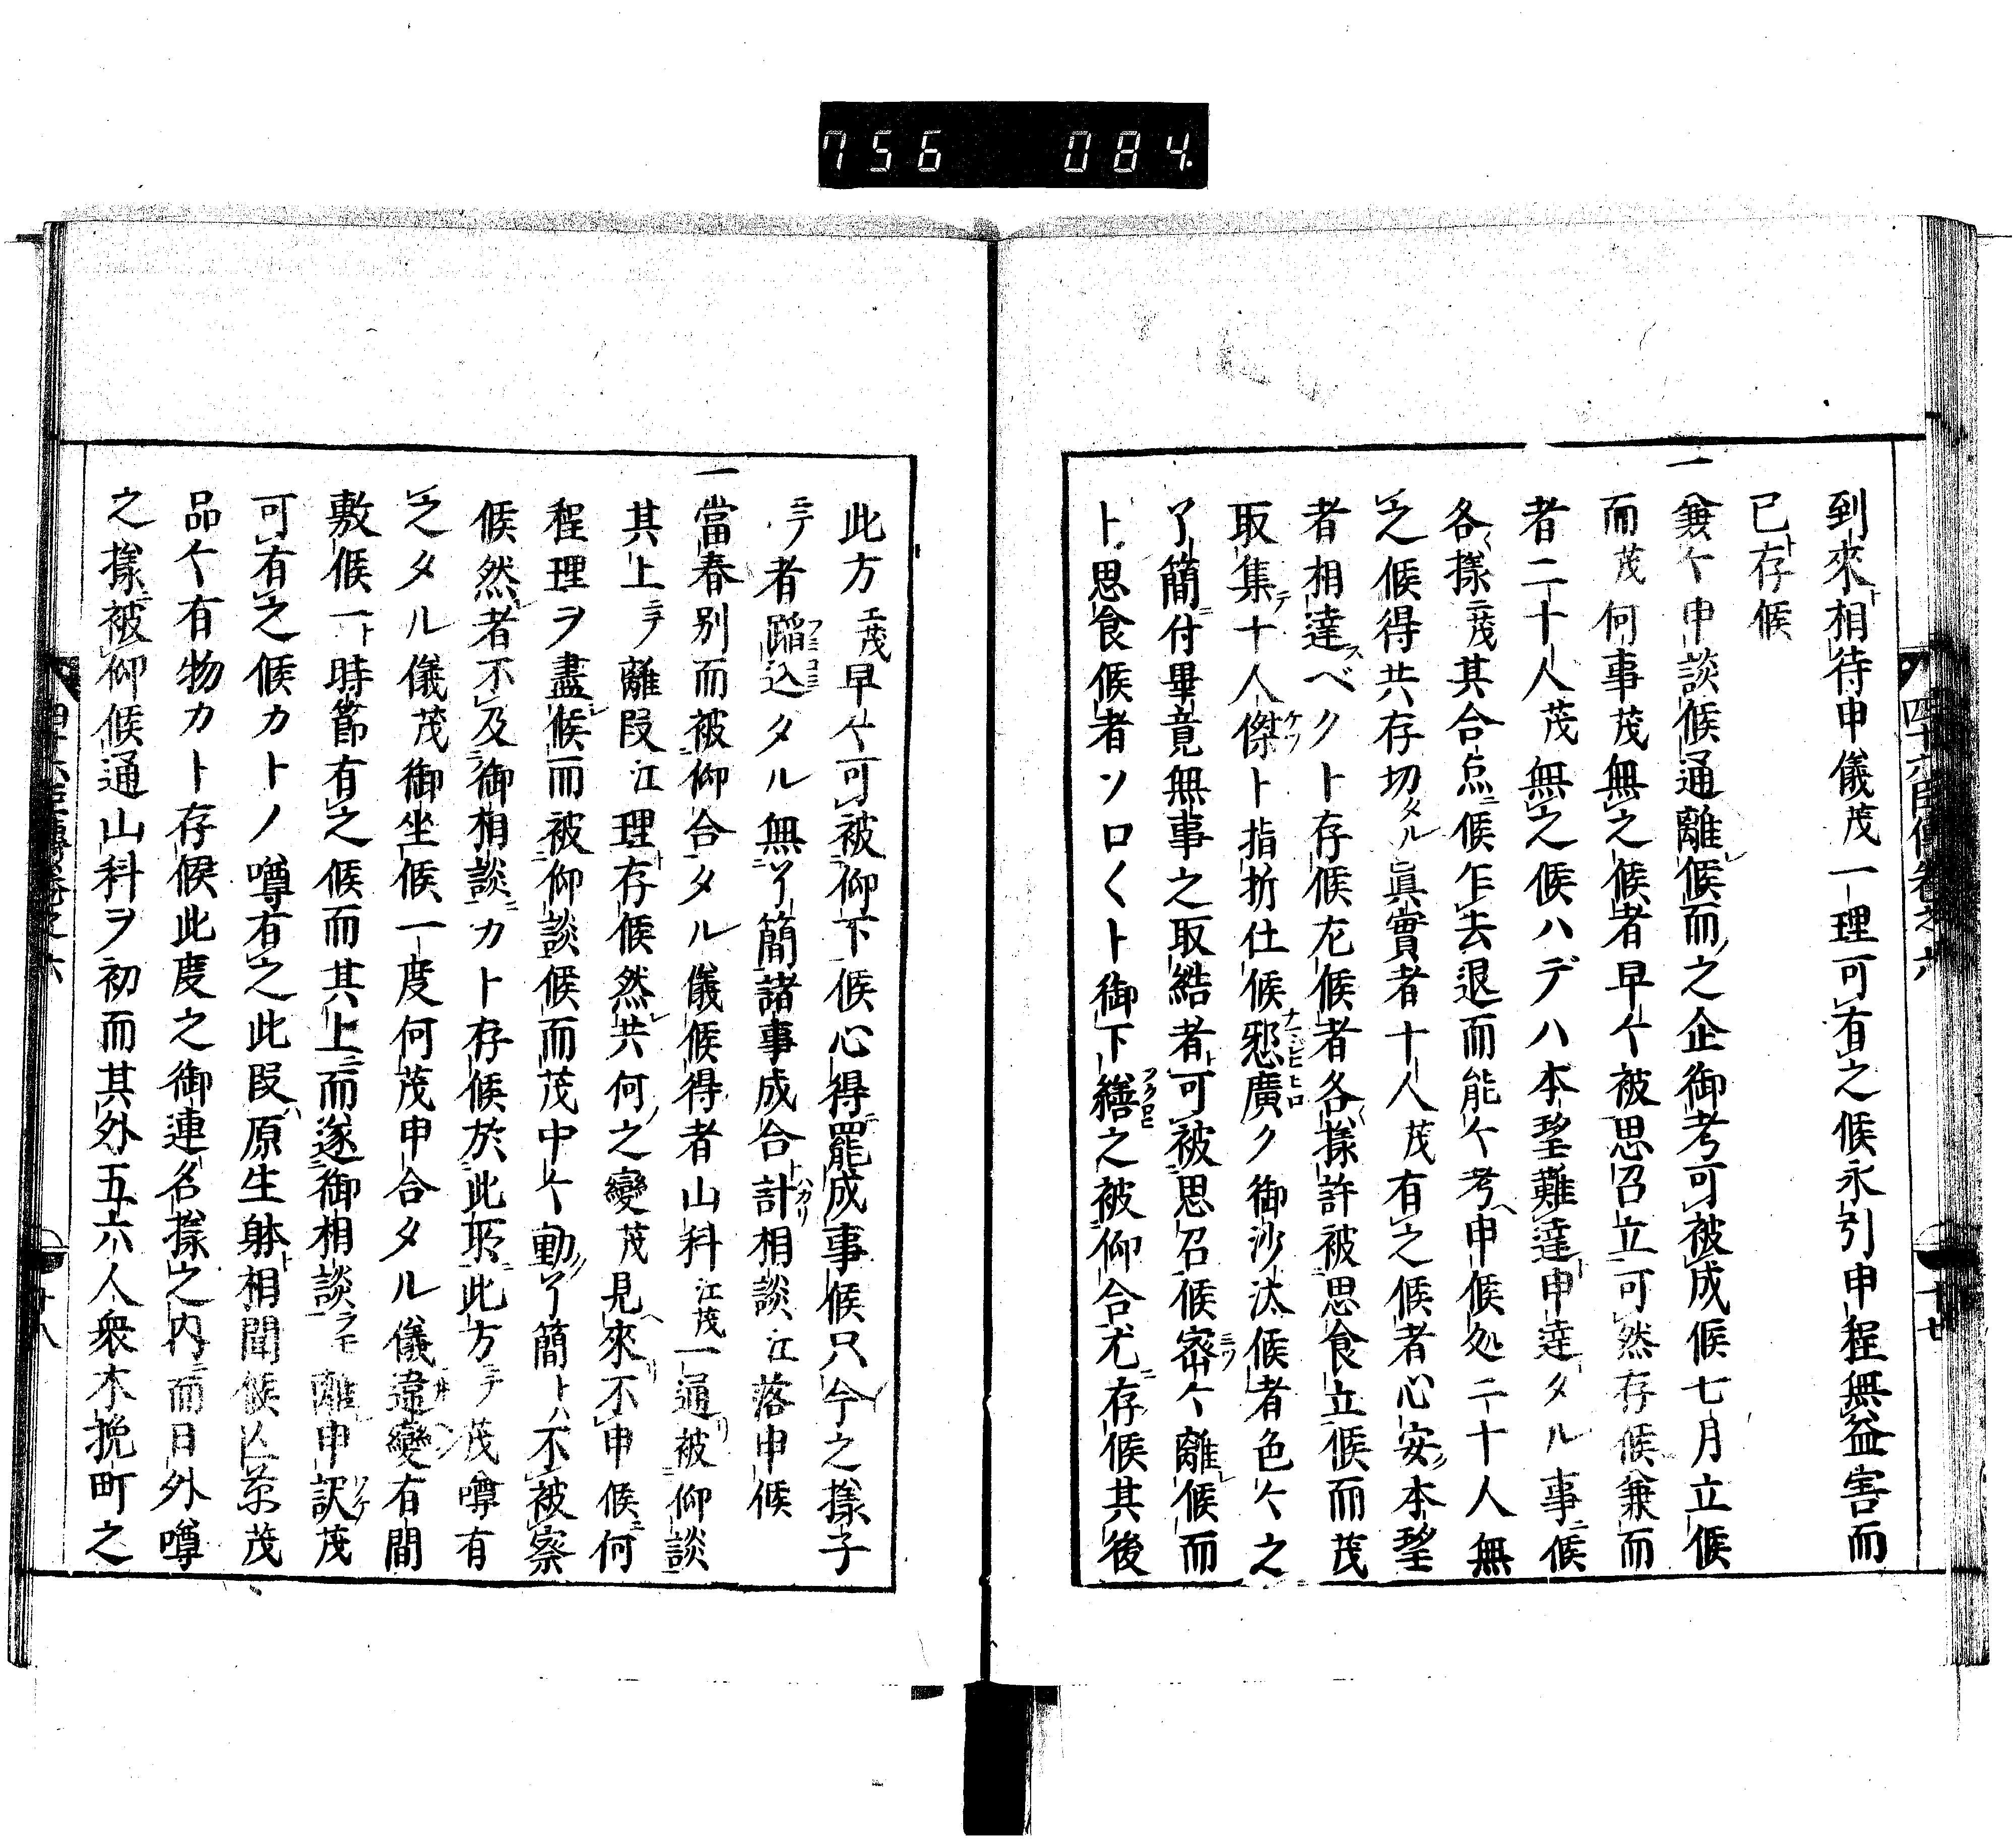 756 084.
四十六臣傳巻之六
十七
到來相待申儀茂一理可有之候永引申程無益害而
已存候
一兼々申談候通離候而之企御考可被成候七月立候
而茂何事茂無之候者早々被思召立可然存候兼而
者二十人茂無之候ハデハ本望難達申達タル事候
各樣茂其合点候乍去退而能々考申候処二十人無
之候得共存切タル眞實者十人茂有之候者心安本望
者相達ベクト存候左候者各樣許被思食立候而茂
取集十人傑ト指折仕候 廣ク御沙汰候者色々之
了簡付畢竟無事之取結者可被思召候密々離候而
ト思食候者ソロ〱ト御下繕之被仰合尤存候其後
此方茂早々可被仰下候心得罷成事候只今之樣子
ニテ者蹈込タル無了簡諸事成合計相談江落申候
一當春別而被仰合タル儀候得者山科江茂一通被仰談
其上ニテ離段江理存候然共何之變茂見來不申候何
程理ヲ盡候而被仰談候而茂中々動了簡トハ不被察
候然者不及御相談カト存候於此所此方ニテ茂噂有
之タル儀茂御坐候一度何茂申合タル儀違變有間
敷候一時節有之候而其上而遂御相談ラモ離申訳茂
可有之候カトノ噂有之此段原生躰相聞候 茂
品々有物カト存候此度之御連名樣之内而日外噂
之樣被仰候通山科ヲ初而其外五六人衆木挽町之
十八